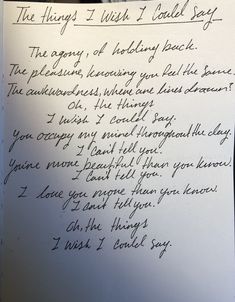 The Things I Wish I Could Say
The agony, of holding back.
The pleasure, knowing you feel the same.
The awkwardness, where are lines drawn?
Oh, the things
I wish I could say.
You occupy my mind throughout the day.
I can't tell you.
You're more beautiful than you know.
I can't tell you.
I love you more than you know.
I can't tell you.
Oh, the things
I wish I could say.